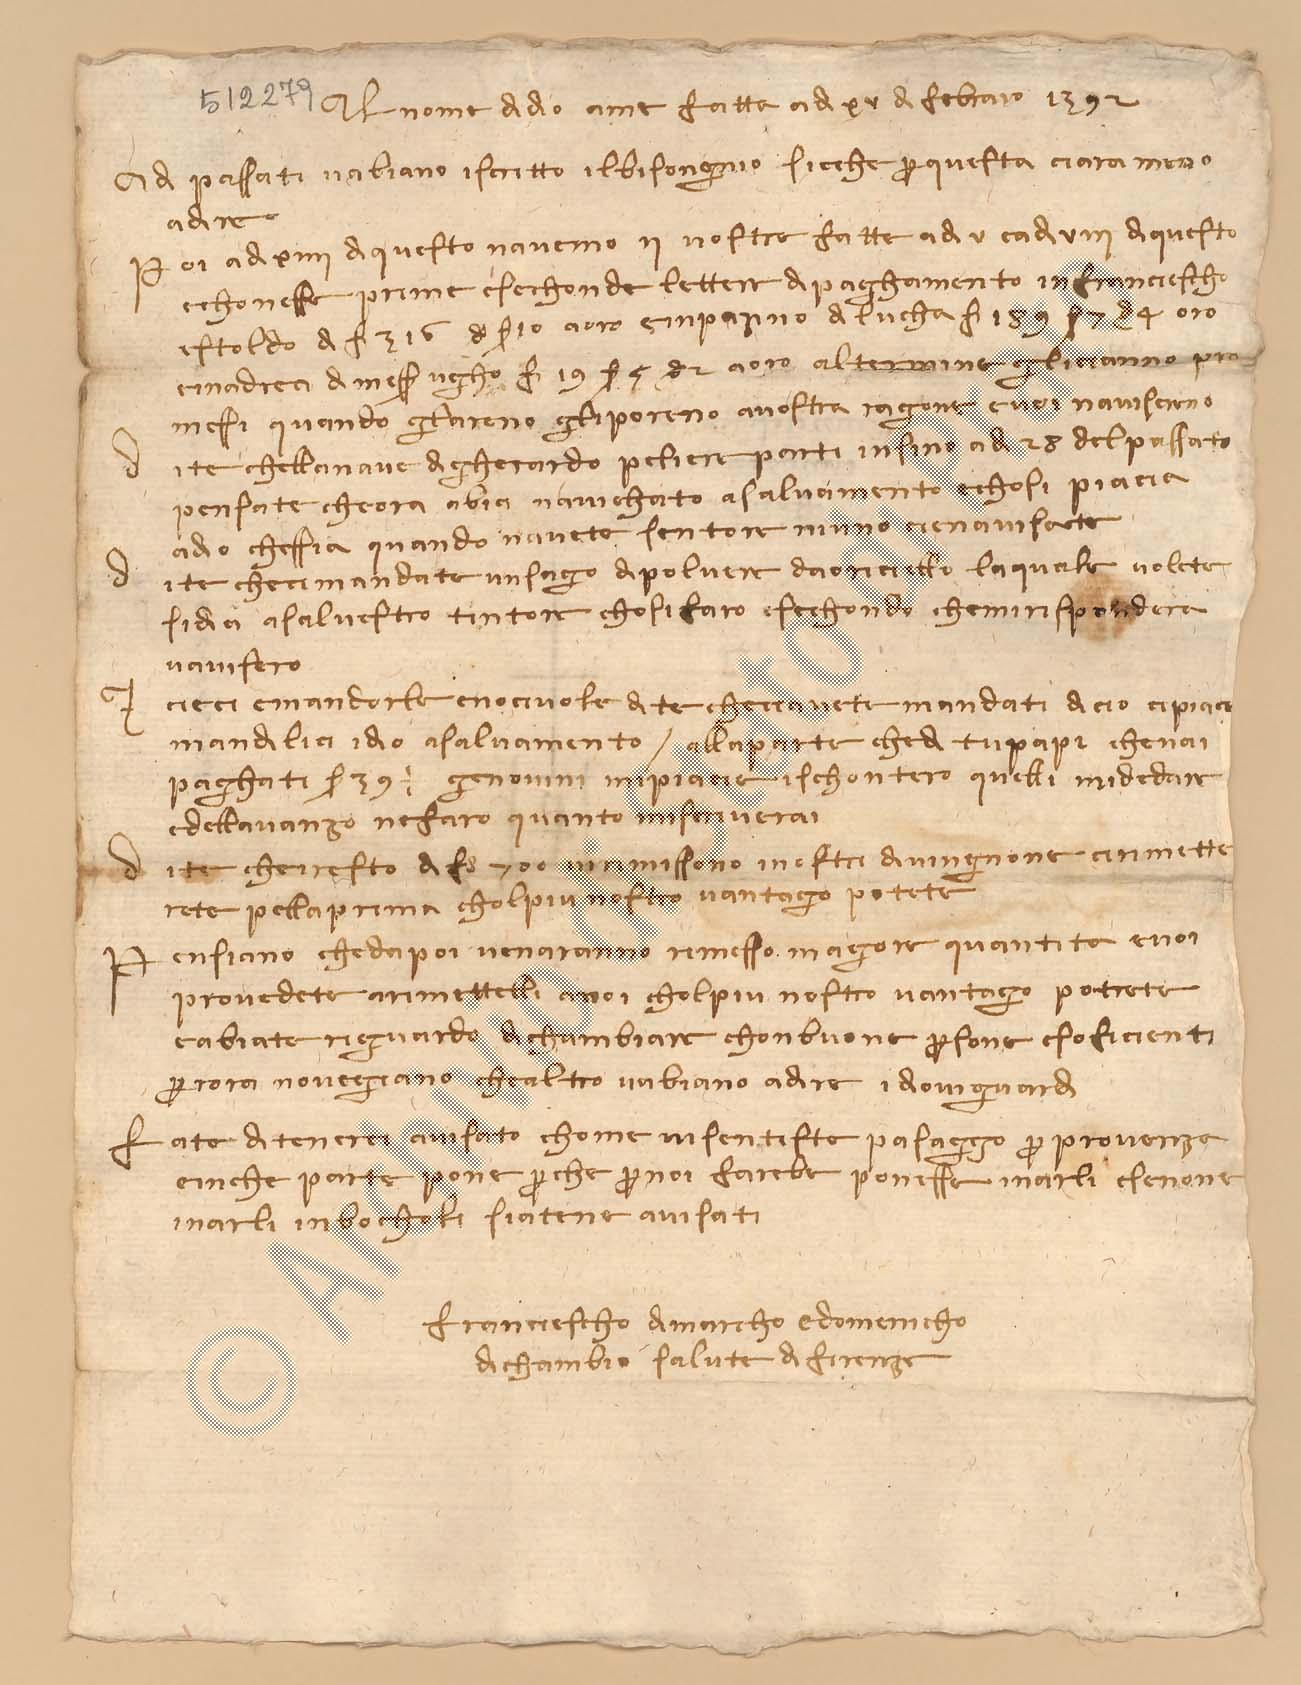 512279 Al nome di dio ame fatta a dì xv di febraro 1392
A dì passati vabiano iscritto il bisongnio sicche per questa ciara meno
adire
Poi a dì xiiii di questo navemo ii vostre fatte a dì v e a dì viii di questo
e chon esse prime e sechonde lettere di paghamento in franciescho
e stoldo di f 316 s 10 a oro e in papino di lucha f 189 s 7 d 4 oro
e in adrea di messer ugho f 19 s 5 d 2 a oro al termine glicianno pro
messi quando gl'areno gli poreno a vostra ragone e voi n'aviserno
Dite chella nave di gherardo peliere parti insino a dì 28 del passato
pensate che ora abia navichato a salvamento e chosi piacia
a dio che ssia quando n'avete sentore niuno cienavisate
Dite checi mandate un sacho di polvere da oricielli la quale volete
si dia a salvestro tintore chosi faro e sechondo chemmi rispondera
vavisero
I cieci e mandorle e nociuole dite checiavete mandati di cio cipiacie
mandilici idio a salvamento / alla parte che di tu papi chenai
paghati s 39 1/2 genovini mi piacie ischontero quelli mi de dare
e dell'avanzo ne faro quanto mi scriverai
Dite che i resto di fs 700 vi rimissono i nostri di vingnone cirimette
rete pella prima chol piu nostro vantago potete
Pensiano che da poi venaranno remesso magore quantita e voi
provedete a rimettelli a noi chol piu nostro vantago potrete
e abiate righuardo di chambiare chon buone persone e soficienti
per ora no vegiano che altro vabiano adire idio vi guardi
Fate di tenerci avisato chome vi sentiste pasaggo per provenza
e in che parte pone perche per noi farebe ponesse in arli e se none
in arli in bocholi siatene avisati
Franciescho di marcho e domenicho
di chambio salute di firenze
© Archivio di Stato di Prato